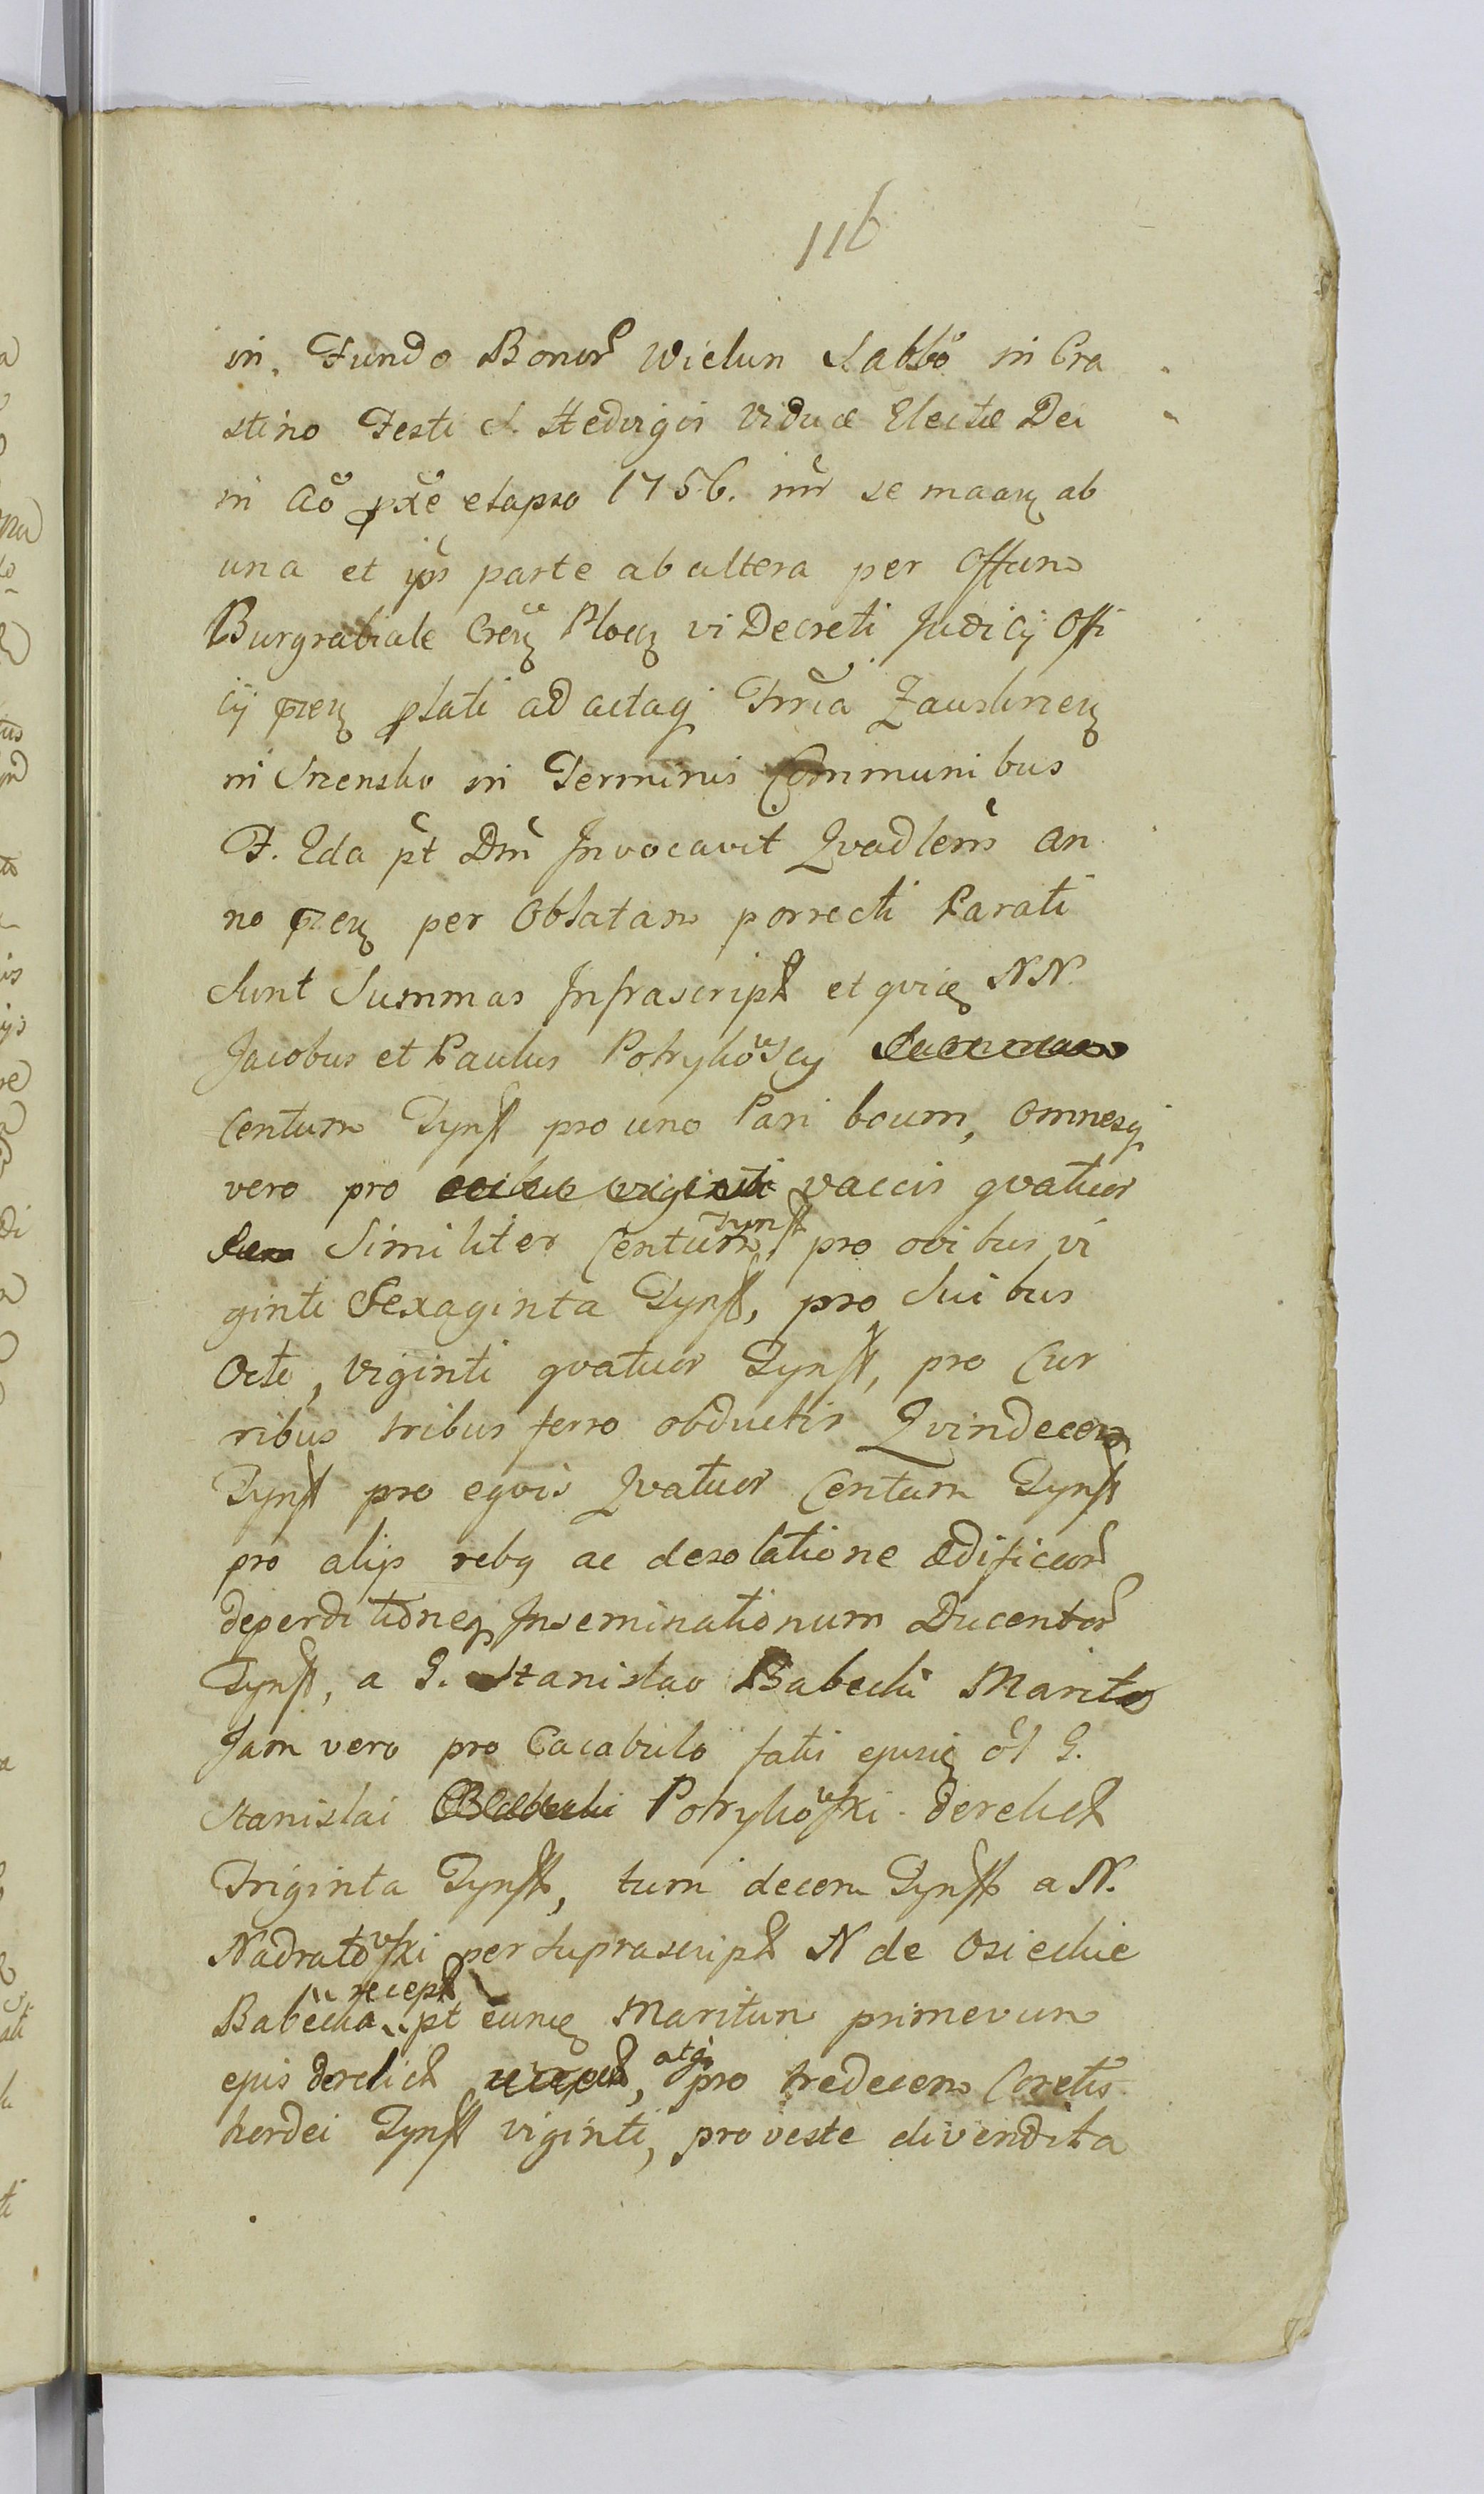 116
in Fundo Bonor Wielun Sabbo in Cra
stino Festi S. Hedvigis Viduæ Electæ Dei
in Ao pxe elapso 1756. inr se ab
una et ips parte ab altera per Offum
Burgrabiale Cren Plocen vi Decreti Judicij Offi
cij pren plati ad actaq Trria Zauskrzen
in Srzensko in Terminis Communibus
F. 2da pt Dni Invocavit Qvadlem An
no pren per Oblatam porrecti Parati
sunt Summas Infrascript et qvidem NN.
Jacobus et Paulus Potrykowscy
Centum Tynff pro uno Pari boum, omnesq
vero pro vaccis qvatuor
Similiter Centum Tynff pro ovibus vi
ginti Sexaginta Tynff, pro Suibus
Octo, Viginti qvatuor Tynff, pro Cur
ribus tribus ferro obductis Qvindecem
Tynff pro eqvis Qvatuor Centum Tynff
pro alijs rebq ac desolatione Ædificior
deperditioneq Inseminationum Ducentor
Tynff, a G. Stanislao Babecki Marito
Jam vero pro Cacabulo fatis ejusdem ol G.
Stanislai Potrykowski derelict
Triginta Tynff, tum decem Tynff a N.
Nadratowski per suprascript N de Osieckie
Babecka recept pt eundem Maritum primevum
ejus derelict, atq pro tredecem Coretis
hordei Tynff viginti, pro veste divendita